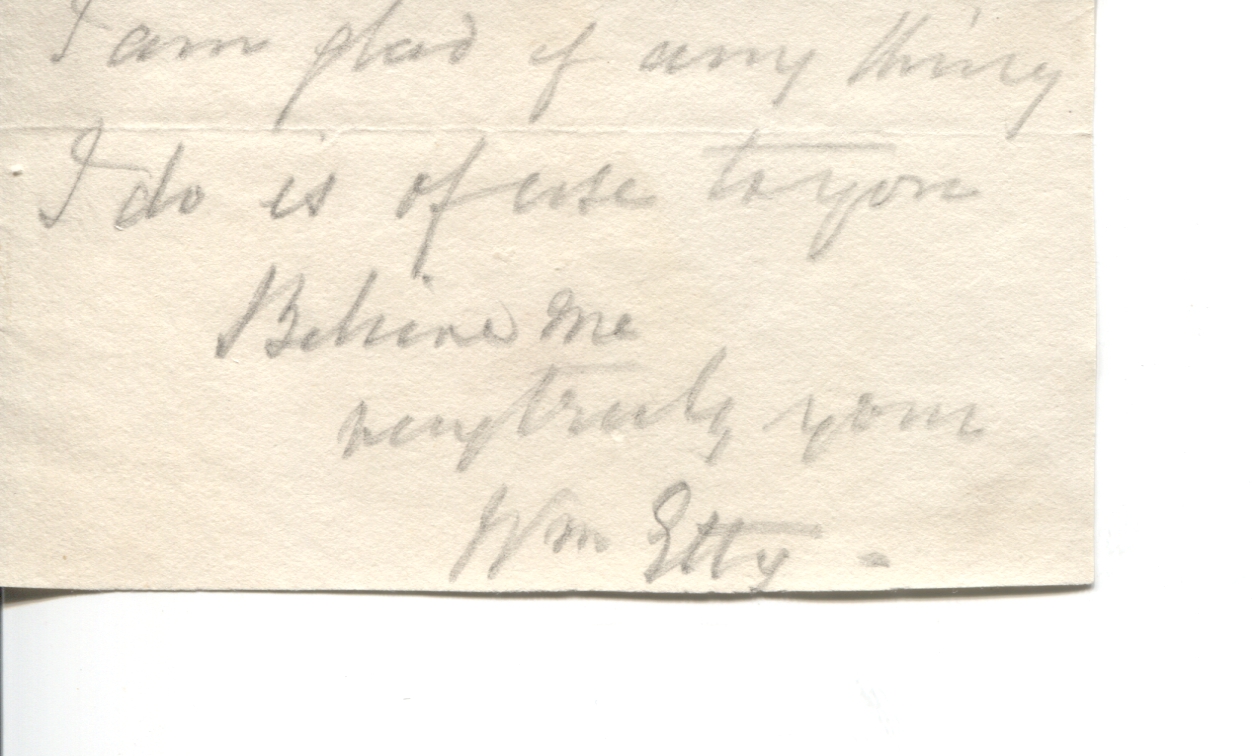 I am glad if any thing
I do is of use to you
Believe me
very truly yours
Wm Etty -